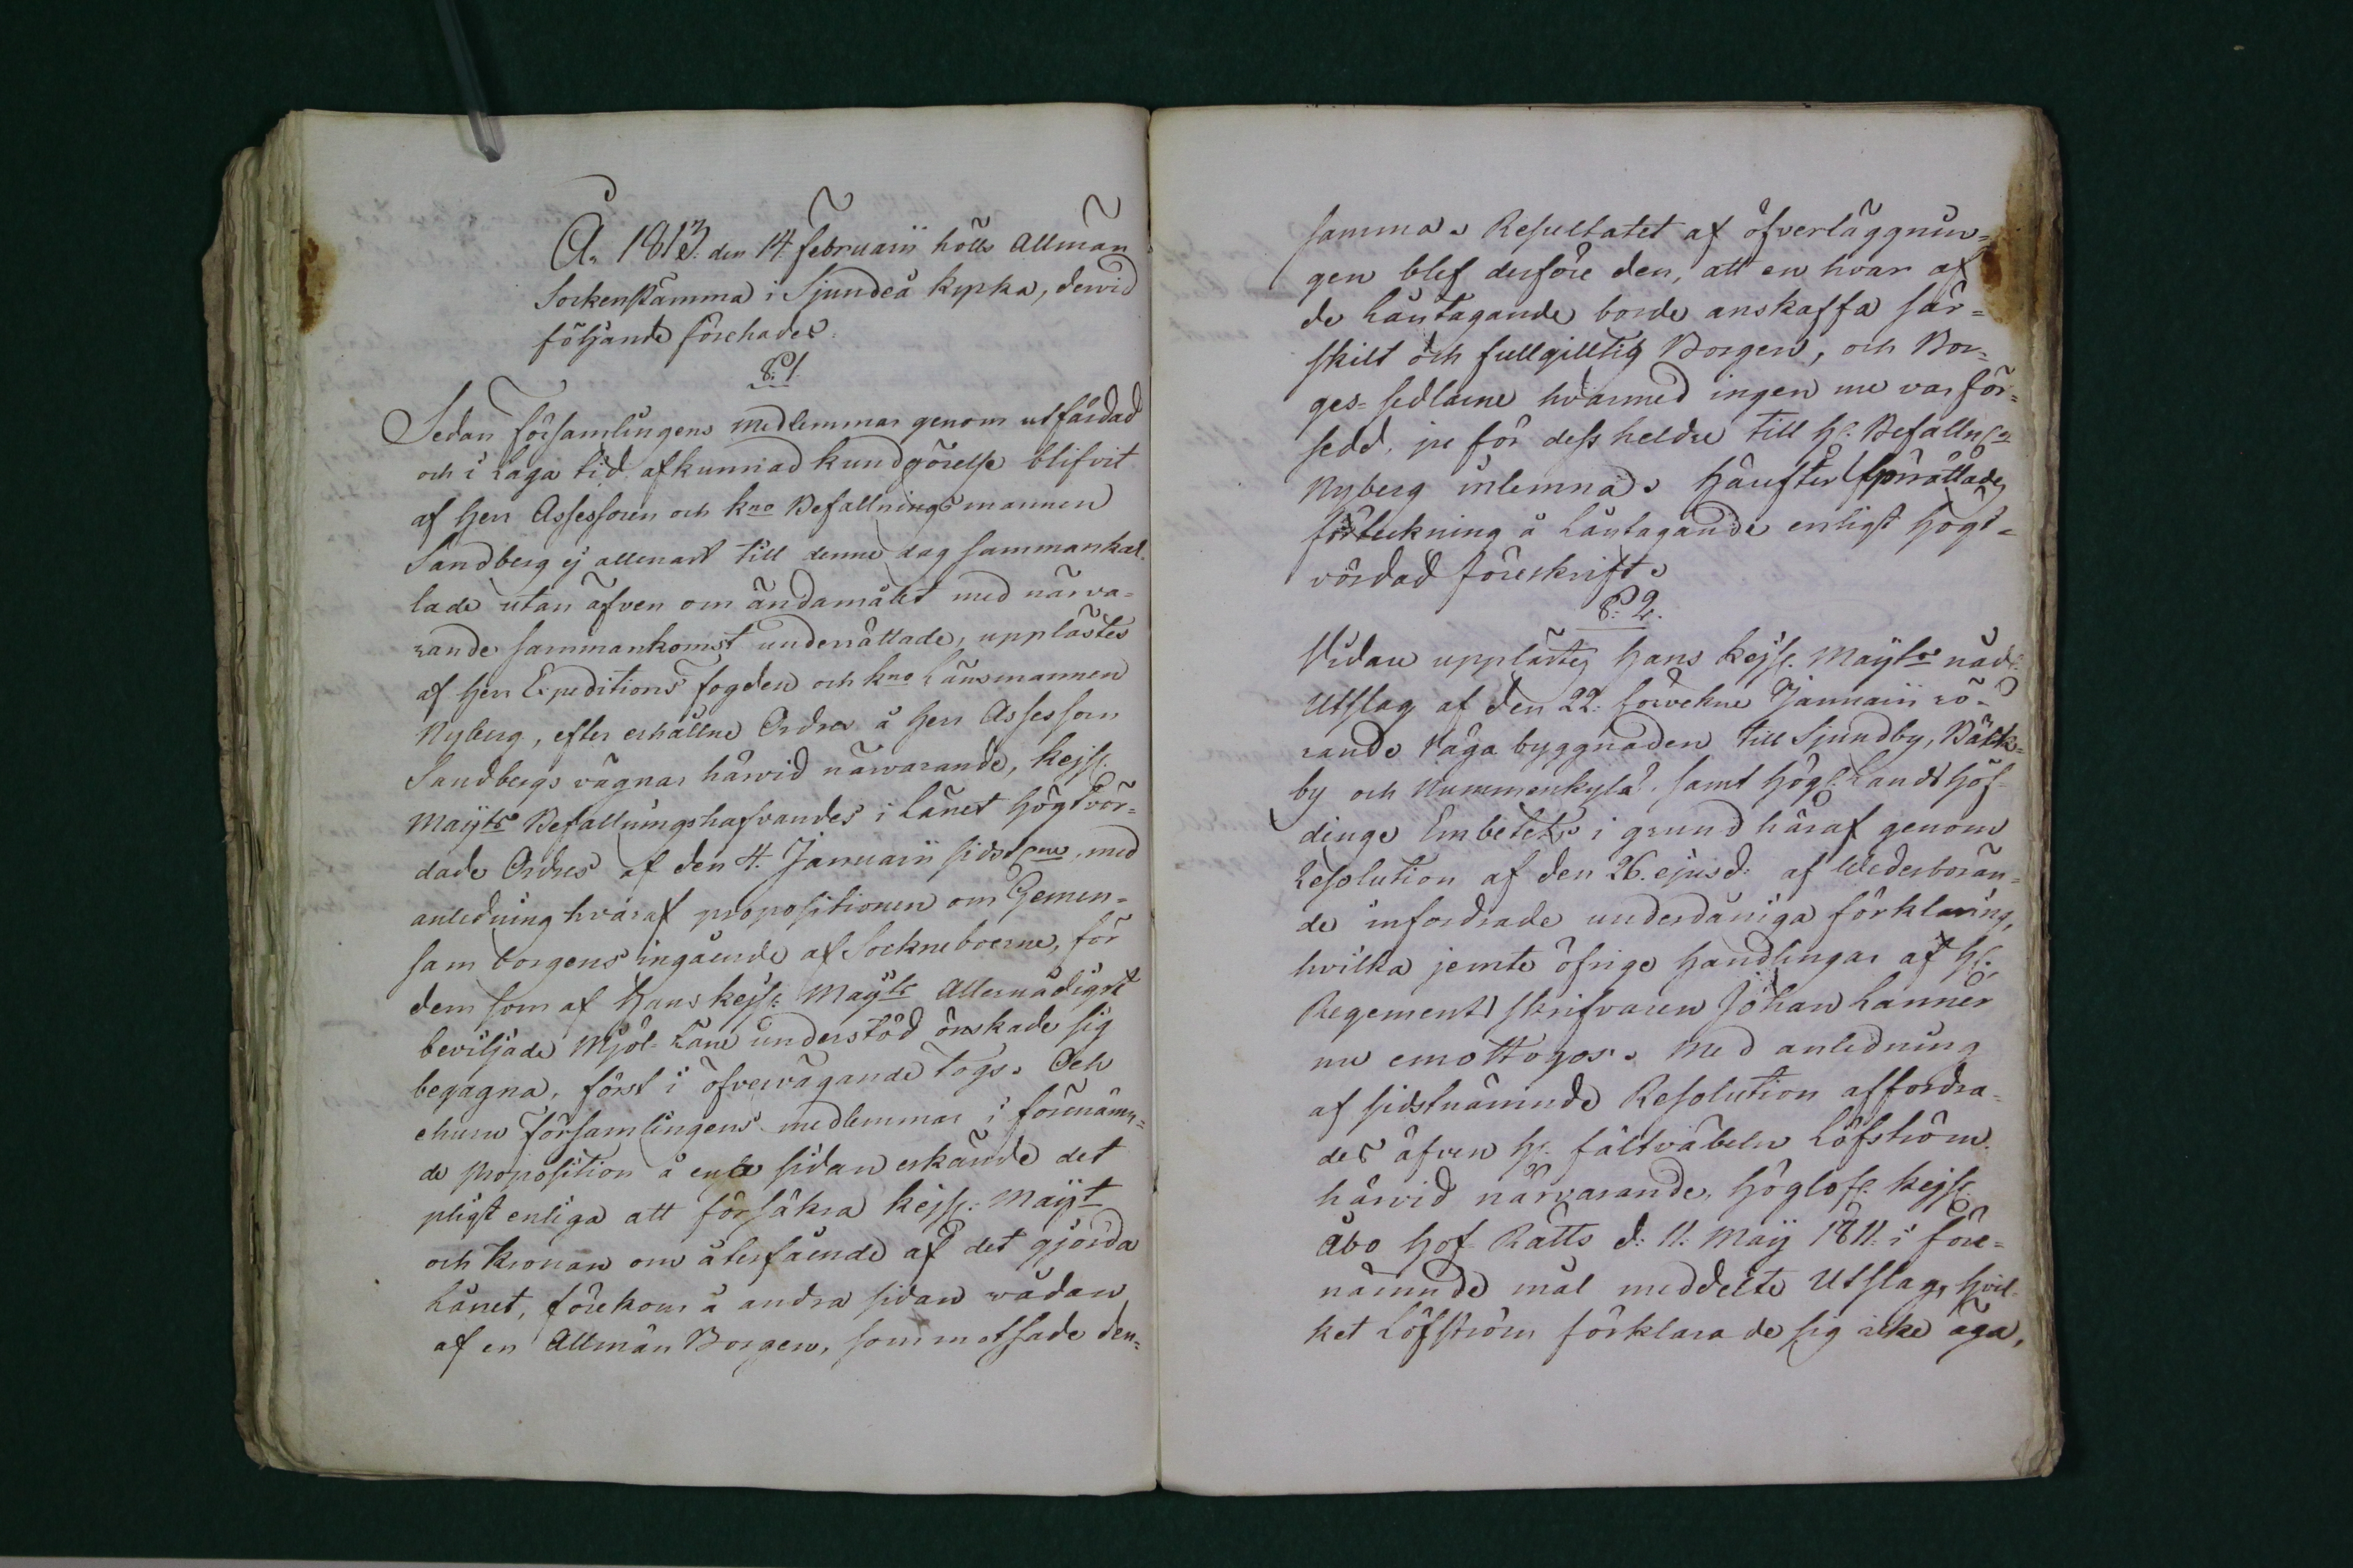 A:o 1813. den 14 Februarii hölls Allmän
Sockenstämma i Sjundeå kyrka, dervid
följande förehades:
§. 1.
Sedan Församlingens medlemmar genom utfärdad
och i Laga tid afkunnad kundgörelse blifvit
af Herr Assessoren och kno Befallningsmannen
Sandberg ej allenast till denne dag sammankal-
lade utan äfven om ändamålet med närva-
rande sammankomst underrättade, upplästes
af Herr Expeditions fogden och kno Länsmannen
Nyberg, efter erhållne Ordres å Herr Assessor
Sandbergs vägnar härvid närvarande, kejs:
Maÿts Befallningshafvandes i Länet Högtvör-
dade Ordres af den 4. Januarii sidstl:ne, med
anledning hvaraf propositionen om Gemen-
sam borgens ingående af Sockneboerne, för
dem som af Hans kejs: Maÿts Allernådigst
beviljade Mjöl-Låne understöd önskade sig
begagna, först i öfvervägande togs. Och
ehuru Församlingens medlemmar i förenämn-
de proposition å ena sidan erkände det
pligtenliga att försäkra kejs: Maÿt
och kronan om återfående af det gjorda
Lånet, förekom å andra sidan vådan
af en Allmän Borgen, som motsade den-
samma. Resultatet af öfverläggnin-
gen blef derföre den, att en hvar af
de Låntagande borde anskaffa sär-
skilt och fullgilltig Borgen, och Bor-
ges-sedlarne hvarmed ingen nu var för-
sedd, ju för dess heldre till H:r Befalln:
Nyberg inlemnas. Härefter upprättades
förteckning å Låntagande enligt högt-
vördad föreskrift.
§. 2.
Vidare upplästes Hans kejs: Maÿts nåd:
Utslag af den 22: sistvekne Januarii rö-
rande Våga byggnaden till Sjundby, Bäcks-
by och Nummenkylä, samt högl: Landshöf-
dinge Embetets i grund häraf genom
Resolution af den 26. ejusd: af Wederböran-
de infordrade underdåniga förklaring,
hvilka jemte öfrige handlingar af H:r
Regements skrifvaren Johan Lanner
nu emottogos. Med anledning
af sidstnämnde Resolution affordra-
des äfven H:r fältväbeln Löfström
härvid närvarande, Höglofl: kejs:
Åbo Hof-Rätts d: 11: Maÿ 1811. i före-
nämnde mål meddelte Utslag, hvil-
ket Löfström förklarade sig icke äga,